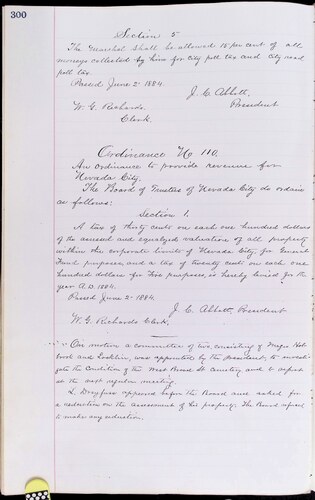 300
Section 5
The Marshal shall be allowed 15 per cent of all
moneys collected by him for City poll tax and City road
poll tax.
Passed June 2- 1884.
J. C. Abbott,
W. G. Richards. President
Clerk.
Ordinance No 110.
An ordinance to provide revenue for
Nevada City.
The Board of Trustees of Nevada City do ordain
as follows:
Section 1.
A tax of thirty cents on each one hundred dollars
of the assessed and equalized valuation of all property
within the corporate limits of Nevada City, for General
Fund purposes, and a tax of twenty cents on each one
hundred dollars for Fire purposes, is hereby levied for the
year A.D. 1884.
Passed June 2- 1884.
J. C. Abbott, President
W. G. Richards Clerk.
On motion a committee of two, consisting of Messrs
and was appointed by the President, to investi-
gate the Condition of the West Broad St Cemetery and to report
at the next regular meeting.
L Dreyfuss appeared before the Board and asked for
a reduction on the assessment of his property. The Board refused
to make any reduction.